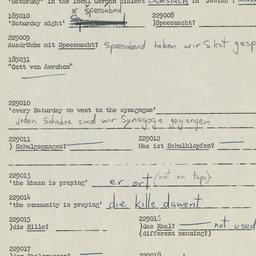 'Saturday' in the local German dialect in Jewish
185010 Speesabend
'Saturday night' 229008
)Speesnacht?
229009
Ausdrücke mit Speesnacht? Speesabend haben wir Skat gesp
185031
"Gott von Awrohom"
229010
'every Saturday we went to the synagogue'
jeden Schabbes sind wir Synagoge gegangen
229011 229012
) Schulgegangen? Was ist Schulklopfen?
229013
'the khazn is praying' er ort (not on tape)
229014
'the community is praying' die kille dawent
229015 229016
)die Kille? )das Kaal? not used
(different meaning?)
229017
229018